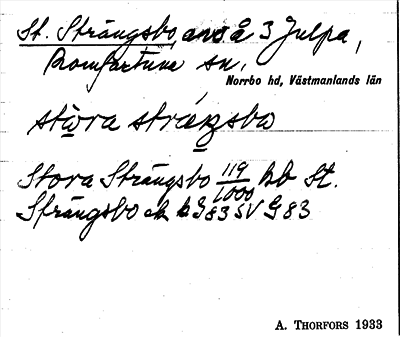 St. Strängsbo, avs å 3 Julpa,
Romfartuna sn.
Norrbo hd, Västmanlands län
stòra strä́ŋsbo
Stora Strängsbo 119/1000 hb St.
Strängsbo ek bl G83 SV G83
A. THORFORS 1933